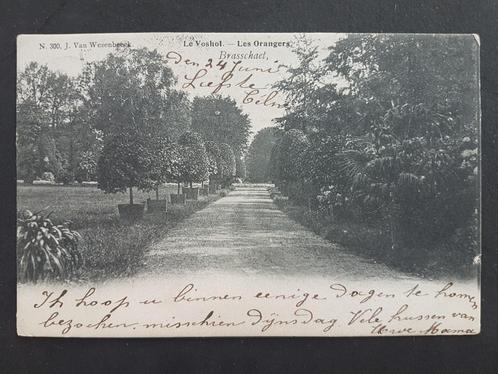 N. 300. J. Van Wesenbeeck.
Le Voshol. — Les Orangers.
Brasschaet,
den 24 Juni
Liefste
Ik hoop u binnen eenige dagen te komen
bezoeken, misschien Dijnsdag Vele kussen van
Uwe Mama